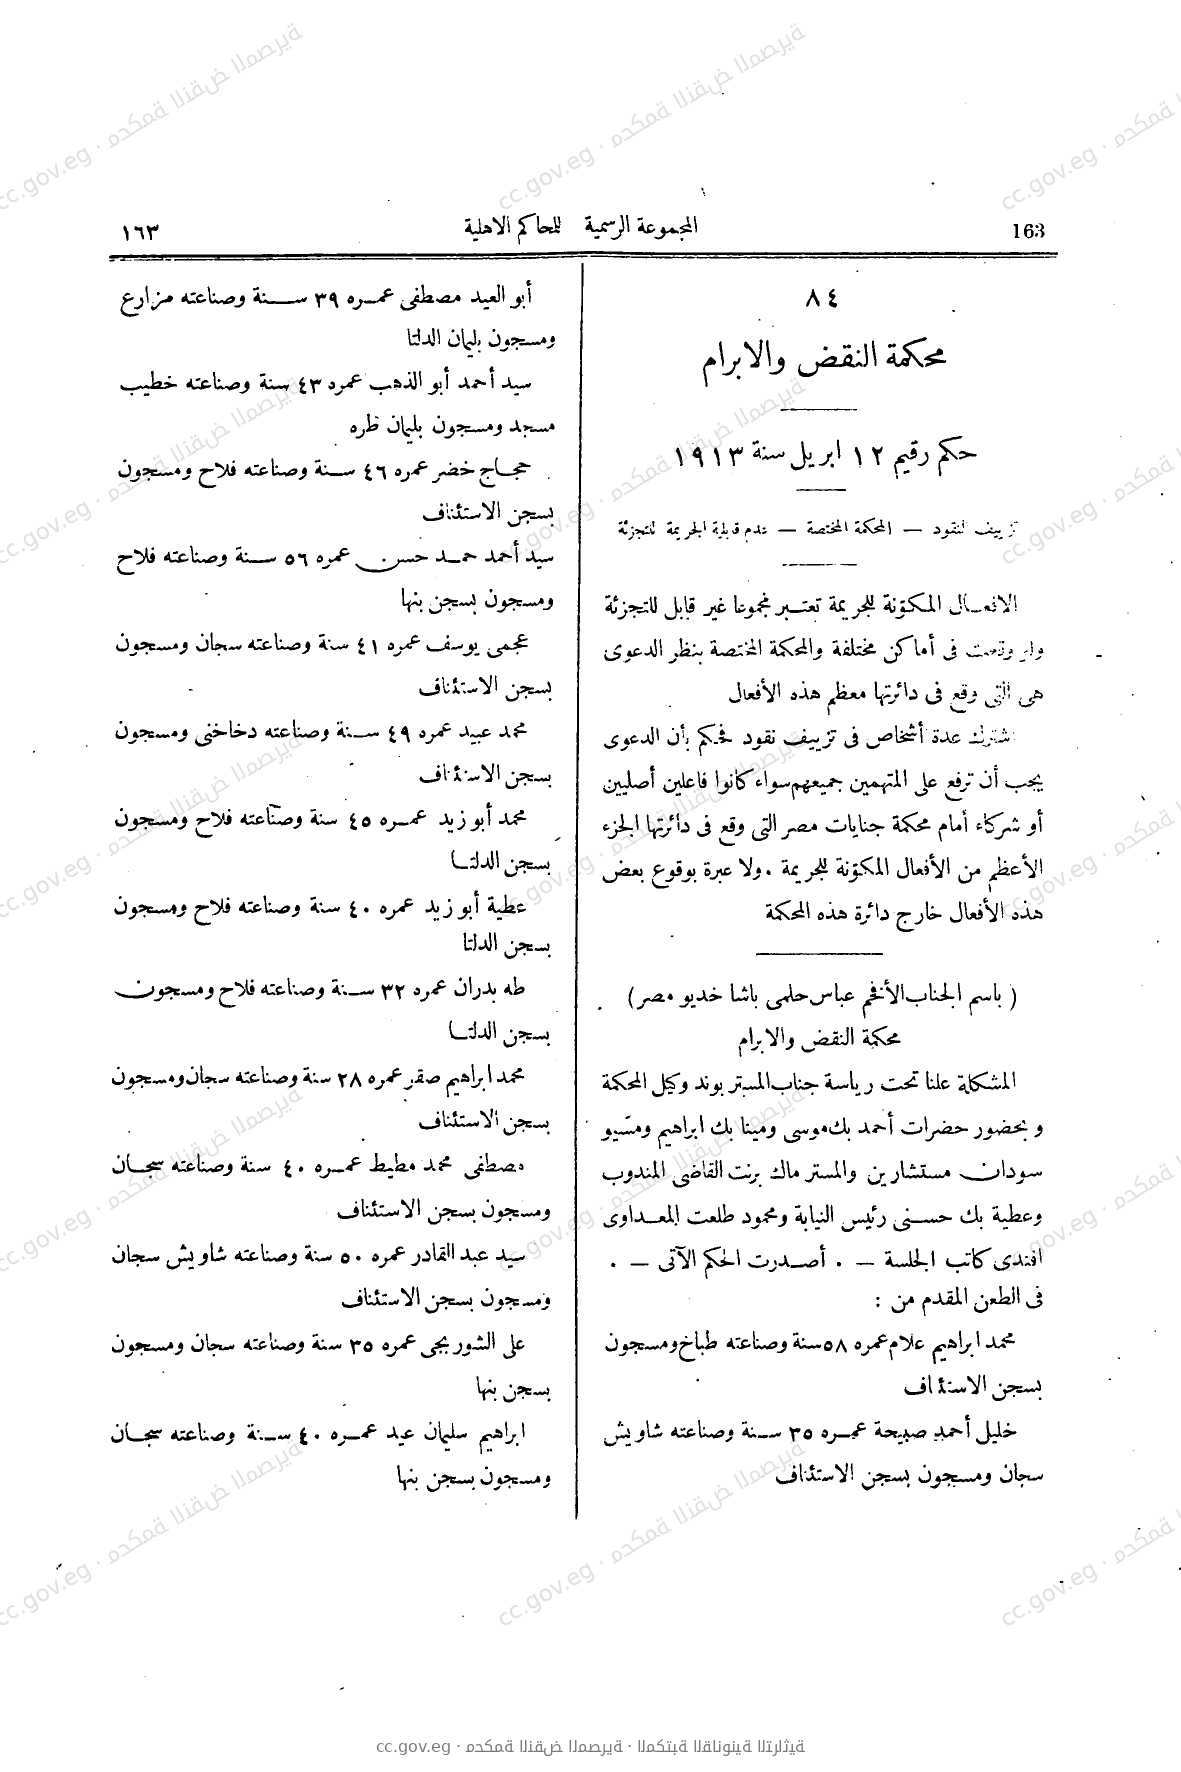 163
المجموعة الرسمية للمحاكم الاهلية
١٦٣
٨٤
محكمة النقض والابرام
حكم رقيم ١٢ ابريل سنة ١٩١٣
تزييف النقود — المحكمة المختصة — عدم قابلية الجريمة للتجزئة
الافعـال المكوّنة للجريمة تعتـبر مجموعا غير قابل للتجزئة
ولو وقعت فى أماكن مختلفة والمحكمة المختصة بنظر الدعوى
هى التى وقع فى دائرتها معظم هذه الأفعال
اشترك عدة أشخاص فى تزييف نقود فحكم بأن الدعوى
يجب أن ترفع على المتهمين جميعهم سواء كانوا فاعلين أصليين
أو شركاء أمام محكمة جنايات مصر التى وقع فى دائرتها الجزء
الأعظم من الأفعال المكوّنة للجريمة . ولا عبرة بوقوع بعض
هذه الأفعال خارج دائرة هذه المحكمة
( باسم الجناب الأفخم عباس حلمى باشا خديو مصر )
محكمة النقض والابرام
المشكلة علنا تحت رياسة جناب المستر بوند وكيل المحكمة
وبحضور حضرات أحمد بك موسى ومينا بك ابراهيم ومسيو
سودان مستشارين والمستر مالك برنت القاضى المندوب
وعطية بك حسـنى رئيس النيابة ومحمود طلعت المعـداوى
افندى كاتب الجلسة — . أصـدرت الحكم الآتى — .
فى الطعن المقدم من :
محمد ابراهيم علام عمره ٥٨ سنة وصناعته طباخ ومسجون
بسجن الاستئناف
خليل أحمد صبيحة عمـره ٣٥ سـنة وصناعته شاويش
سجان ومسجون بسجن الاستئناف
أبو العيد مصطفى عمـره ٣٩ سـنة وصناعته مزارع
ومسجون بليمان الدلتا
سيد أحمد أبو الذهب عمره ٤٣ سنة وصناعته خطيب
مسجد ومسجون بليمان طره
حجـاج خضر عمره ٤٦ سـنة وصناعته فلاح ومسجون
بسجن الاستئناف
سيد أحمد حمـد حسن عمره ٥٦ سـنة وصناعته فلاح
ومسجون بسجن بنها
عجمى يوسف عمره ٤١ سنة وصناعته سجان ومسجون
بسجن الاستئناف
محمد عبيد عمره ٤٩ سـنة وصناعته دخاخنى ومسجون
بسجن الاستئناف
محمد أبو زيد عمـره ٤٥ سنة وصناعته فلاح ومسجون
بسجن الدلتـا
عطية أبو زيد عمره ٤٠ سنة وصناعته فلاح ومسجون
بسجن الدلتا
طه بدران عمره ٣٢ سـنة وصناعته فلاح ومسجون
بسجن الدلتـا
محمد ابراهيم صقر عمره ٢٨ سنة وصناعته سجان ومسجون
بسجن الاستئناف
مصطفى محمد مطيط عمـره ٤٠ سنة وصناعته سجـان
ومسجون بسجن الاستئناف
سيد عبد القادر عمره ٥٠ سنة وصناعته شاويش سجان
ومسجون بسجن الاستئناف
على الشوربجى عمره ٣٥ سنة وصناعته سجان ومسجون
بسجن بنها
ابراهيم سليمان عيد عمـره ٤٠ سـنة وصناعته سجـان
ومسجون بسجن بنها
cc.gov.eg · محكمة النقض المصرية · المكتبة القانونية التراثية